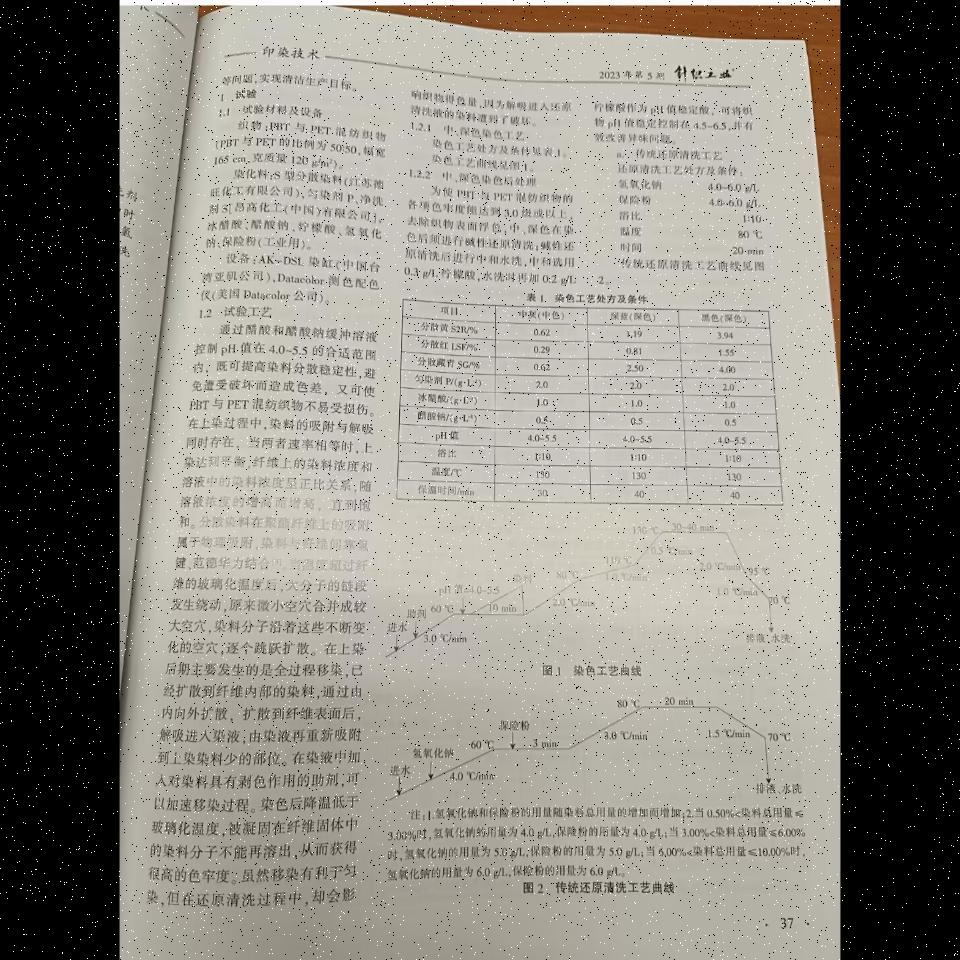 印染技术
2023年第5期 针织工业
等问题,实现清洁生产目标。
1 试验
1.1 试验材料及设备
织物:PBT与PET混纺织物
(PBT与PET的比例为50:50,幅宽
165 cm,克质量120 g/m²)。
染化料:S型分散染料(江苏德
旺化工有限公司);匀染剂P、净洗
剂S(昂高化工(中国)有限公司);
冰醋酸、醋酸钠、柠檬酸、氢氧化
钠、保险粉(工业用)。
设备:AK-DSL染缸(中国台
湾亚矶公司),Datacolor测色配色
仪(美国Datacolor公司)。
1.2 试验工艺
通过醋酸和醋酸钠缓冲溶液
控制pH值在4.0~5.5的合适范围
内,既可提高染料分散稳定性,避
免遭受破坏而造成色差,又可使
PBT与PET混纺织物不易受损伤。
在上染过程中,染料的吸附与解吸
同时存在,当两者速率相等时,上
染达到平衡,纤维上的染料浓度和
溶液中的染料浓度呈正比关系,随
溶液浓度的增高而增高,直到饱
和。分散染料在聚酯纤维上的吸附
属于物理吸附,染料与纤维间靠氢
键、范德华力结合。当温度超过纤
维的玻璃化温度后,大分子的链段
发生绕动,原来微小空穴合并成较
大空穴,染料分子沿着这些不断变
化的空穴,逐个跳跃扩散。在上染
后期主要发生的是全过程移染,已
经扩散到纤维内部的染料,通过由
内向外扩散、扩散到纤维表面后,
解吸进入染液,由染液再重新吸附
到上染染料少的部位。在染液中加
入对染料具有剥色作用的助剂,可
以加速移染过程。染色后降温低于
玻璃化温度,被凝固在纤维固体中
的染料分子不能再溶出,从而获得
很高的色牢度。虽然移染有利于匀
染,但在还原清洗过程中,却会影
响织物得色量,因为解吸进入还原
清洗液的染料遭到了破坏。
1.2.1 中、深色染色工艺
染色工艺处方及条件见表1。
染色工艺曲线见图1。
1.2.2 中、深色染色后处理
为使PBT与PET混纺织物的
各项色牢度须达到3.0级或以上,
去除织物表面浮色,中、深色在染
色后须进行碱性还原清洗;碱性还
原清洗后进行中和水洗,中和选用
0.3 g/L柠檬酸,水洗时再加0.2 g/L
柠檬酸作为pH值稳定酸,可将织
物pH值稳定控制在4.5~6.5,并有
效改善异味问题。
a. 传统还原清洗工艺
还原清洗工艺处方及条件:
氢氧化钠 4.0~6.0 g/L
保险粉 4.0~6.0 g/L
浴比 1:10
温度 80 ℃
时间 20 min
传统还原清洗工艺曲线见图
2。
表1 染色工艺处方及条件
项目 中灰(中色) 深蓝(深色) 黑色(深色)
分散黄S2R/% 0.62 1.19 3.94
分散红LSF/% 0.29 0.81 1.55
分散藏青SG/% 0.62 2.50 4.00
匀染剂P/(g·L⁻¹) 2.0 2.0 2.0
冰醋酸/(g·L⁻¹) 1.0 1.0 1.0
醋酸钠/(g·L⁻¹) 0.5 0.5 0.5
pH值 4.0~5.5 4.0~5.5 4.0~5.5
浴比 1:10 1:10 1:10
温度/℃ 130 130 130
保温时间/min 30 40 40
130 ℃ 30~40 min
0.5 ℃/min
110 ℃
1.0 ℃/min
2.0 ℃/min
95 ℃
1.0 ℃/min
70 ℃
排液、水洗
80 ℃
2.0 ℃/min
染料
pH值=4.0~5.5
60 ℃ 10 min
助剂
进水
3.0 ℃/min
图1 染色工艺曲线
80 ℃ 20 min
保险粉
60 ℃ 3 min
3.0 ℃/min
1.5 ℃/min
70 ℃
氢氧化钠
进水
4.0 ℃/min
排液、水洗
注:1.氢氧化钠和保险粉的用量随染料总用量的增加而增加;2.当0.50%<染料总用量≤
3.00%时,氢氧化钠的用量为4.0 g/L,保险粉的用量为4.0 g/L;当3.00%<染料总用量≤6.00%
时,氢氧化钠的用量为5.0 g/L,保险粉的用量为5.0 g/L;当6.00%<染料总用量≤10.00%时,
氢氧化钠的用量为6.0 g/L,保险粉的用量为6.0 g/L。
图2 传统还原清洗工艺曲线
· 37 ·